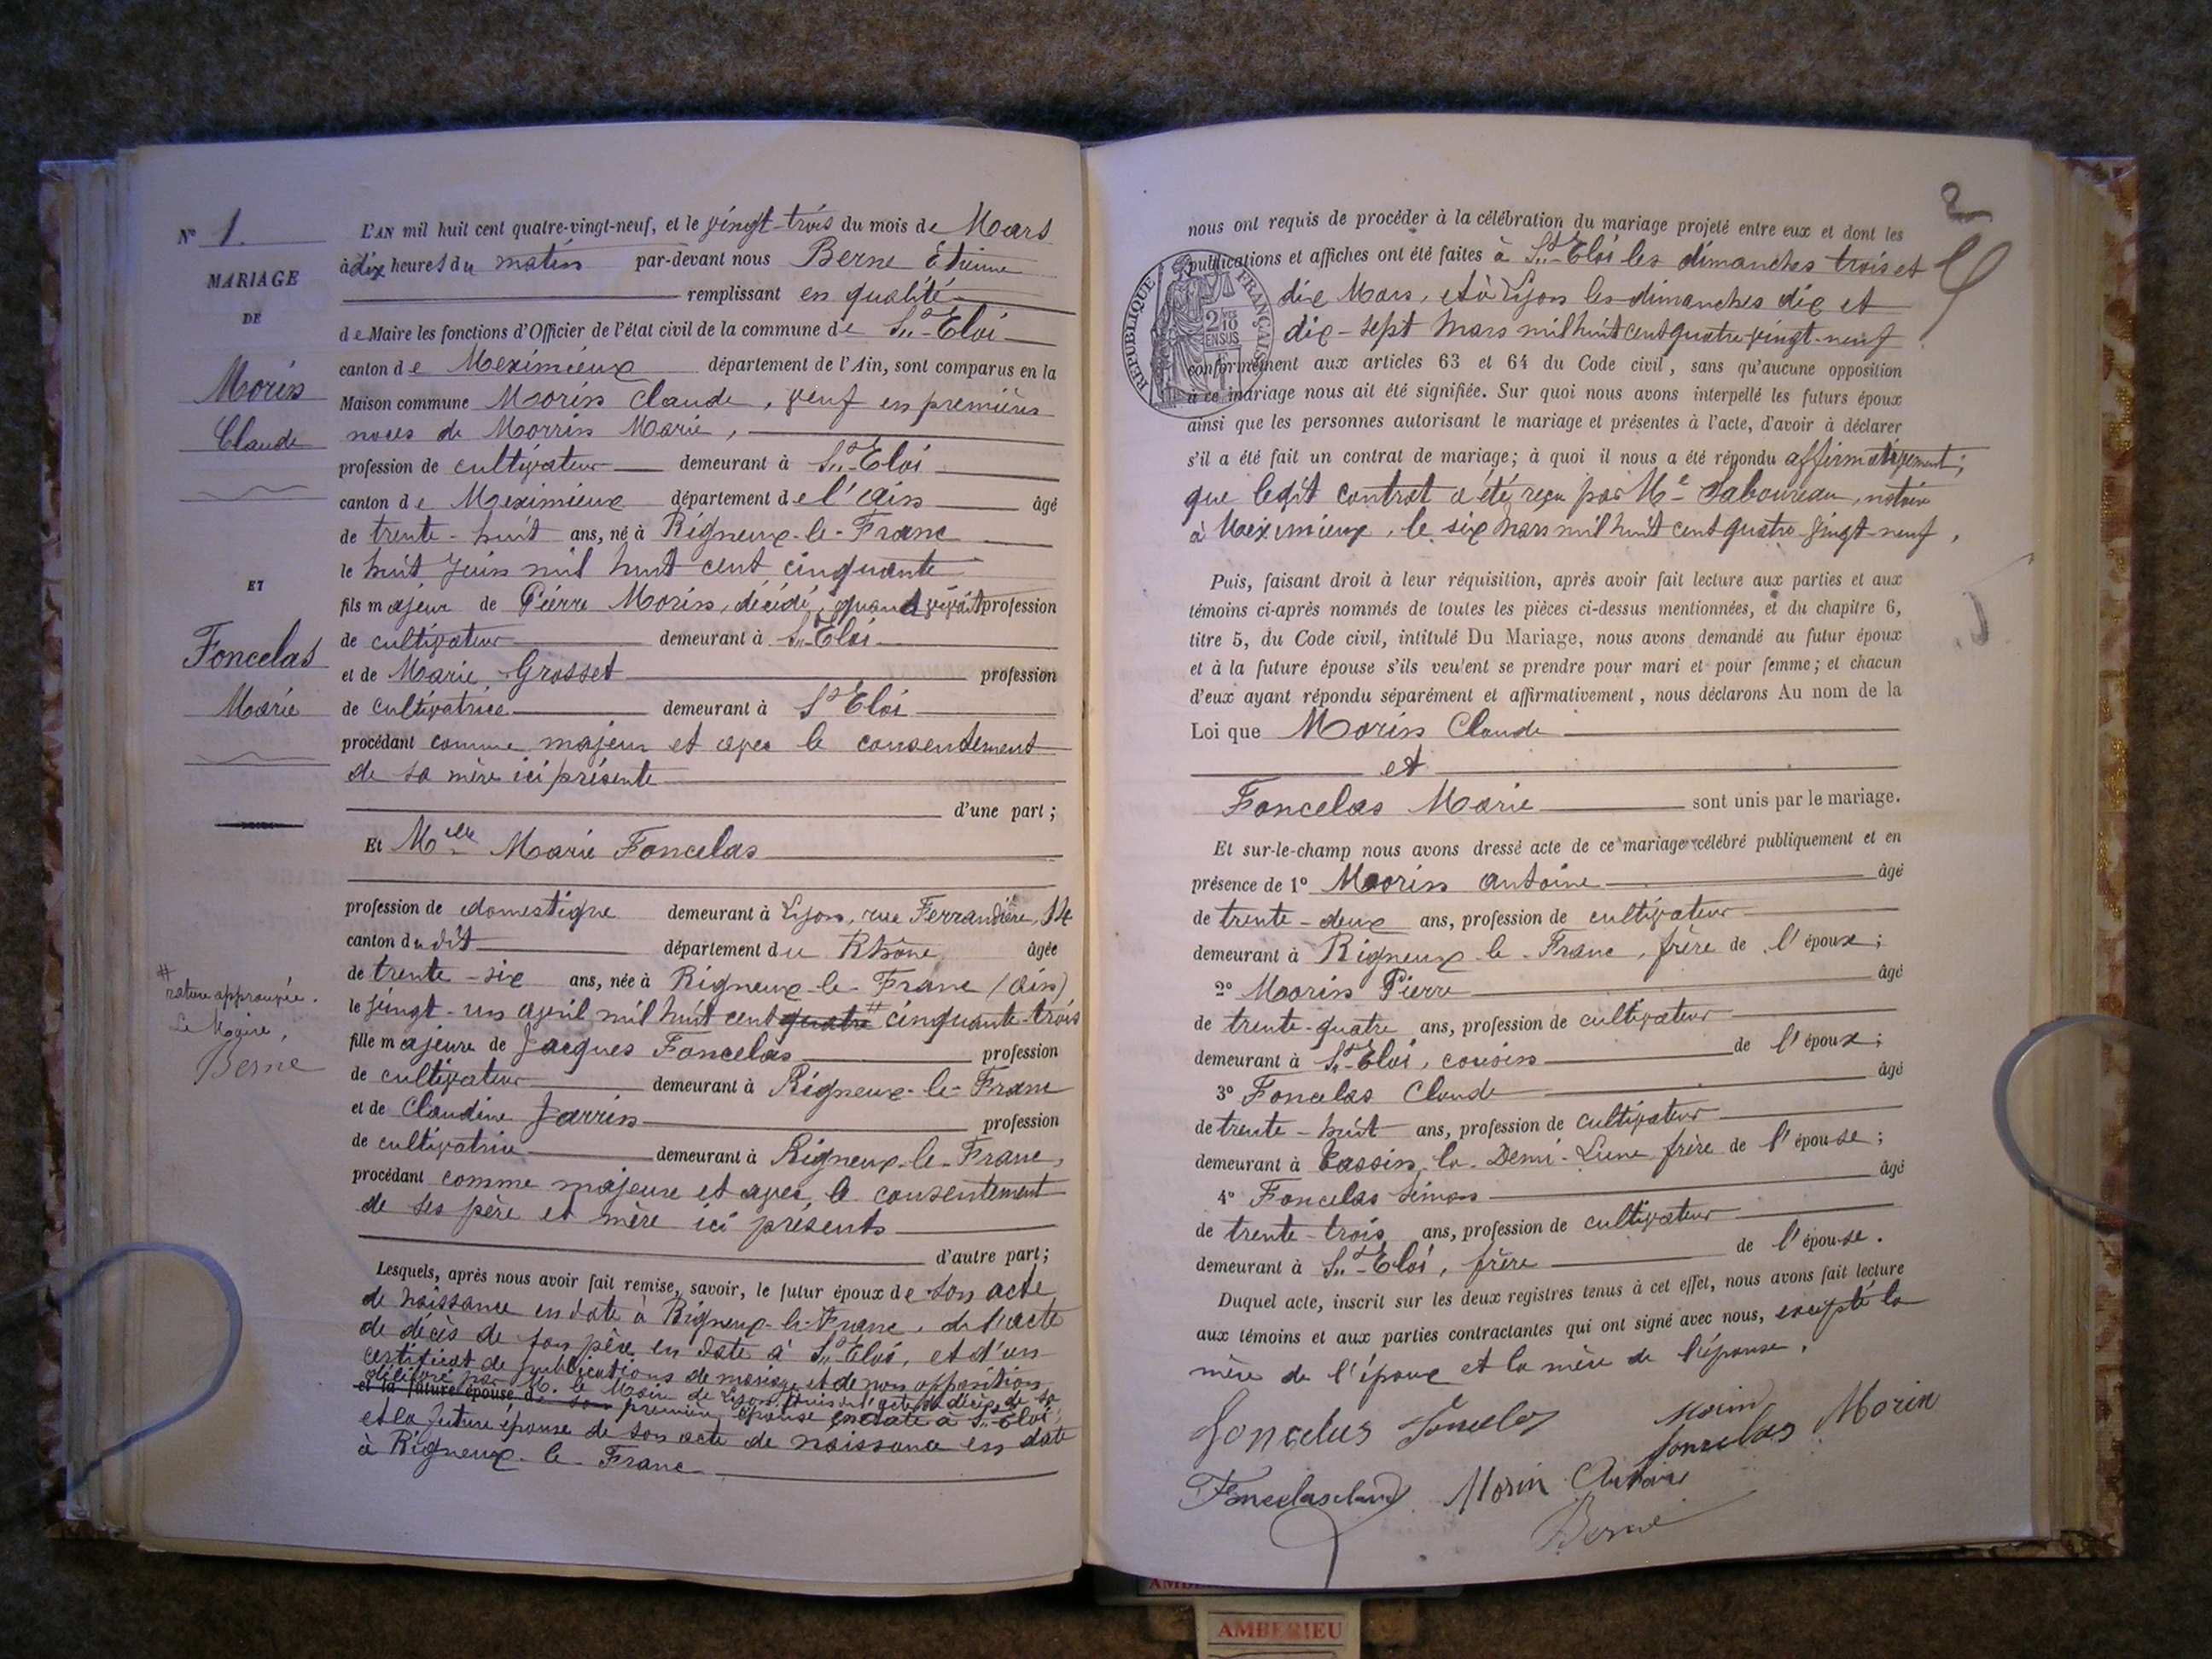 N° 1.
MARIAGE
DE
Morin
Claude
ET
Foncelas
Marie
#
rature approuvée.
Le Maire,
Berne
L'AN mil huit cent quatre-vingt-neuf, et le vingt-trois du mois de Mars
à dix heures du matin par-devant nous Berne Etienne
remplissant en qualité
de Maire les fonctions d'Officier de l'état civil de la commune de St-Eloi
canton de Meximieux département de l'Ain, sont comparus en la
Maison commune Morin Claude, veuf en premières
noces de Morrin Marie,
profession de cultivateur demeurant à St-Eloi
canton de Meximieux département de l'Ain âgé
de trente-huit ans, né à Rigneux-le-Franc
le huit Juin mil huit cent cinquante
fils majeur de Pierre Morin, décédé, quand vivait profession
de cultivateur demeurant à St-Eloi
et de Marie Grosset profession
de cultivatrice demeurant à St Eloi
procédant comme majeur et avec le consentement
de sa mère ici présente
d'une part;
Et Melle Marie Foncelas
profession de domestique demeurant à Lyon, rue Ferrandière, 14
canton dudit département du Rhône âgée
de trente-six ans, née à Rigneux-le-Franc (Ain)
le vingt-un avril mil huit cent quatre # cinquante-trois
fille majeure de Jacques Foncelas profession
de cultivateur demeurant à Rigneux-le-Franc
et de Claudine Jarrin profession
de cultivatrice demeurant à Rigneux-le-Franc,
procédant comme majeure et avec le consentement
de ses père et mère ici présents
d'autre part;
Lesquels, après nous avoir fait remise, savoir, le futur époux de son acte
de naissance en date à Rigneux-le-Franc, de l'acte
de décès de son père en date à St-Eloi, et d'un
certificat de publications de mariage et de non opposition
délivré par M. le Maire de Lyon, puis de l'acte de décès de sa
et la future épouse de son première épouse en date à St-Eloi;
et la future épouse de son acte de naissance en date
à Rigneux-le-Franc
2
nous ont requis de procéder à la célébration du mariage projeté entre eux et dont les
publications et affiches ont été faites à St-Eloi les dimanches trois et
dix Mars, et à Lyon les dimanches dix et
dix-sept Mars mil huit cent quatre-vingt-neuf
conformément aux articles 63 et 64 du Code civil, sans qu'aucune opposition
à ce mariage nous ait été signifiée. Sur quoi nous avons interpellé les futurs époux
ainsi que les personnes autorisant le mariage et présentes à l'acte, d'avoir à déclarer
s'il a été fait un contrat de mariage; à quoi il nous a été répondu affirmativement;
que ledit contrat a été reçu par Me Saboureau, notaire
à Meximieux, le six Mars mil huit cent quatre-vingt-neuf.
RÉPUBLIQUE FRANÇAISE
2/10
EN SUS
Puis, faisant droit à leur réquisition, après avoir fait lecture aux parties et aux
témoins ci-après nommés de toutes les pièces ci-dessus mentionnées, et du chapitre 6,
titre 5, du Code civil, intitulé Du Mariage, nous avons demandé au futur époux
et à la future épouse s'ils veulent se prendre pour mari et pour femme; et chacun
d'eux ayant répondu séparément et affirmativement, nous déclarons Au nom de la
Loi que Morin Claude
et
Foncelas Marie sont unis par le mariage.
Et sur-le-champ nous avons dressé acte de ce mariage célébré publiquement et en
présence de 1° Morin Antoine âgé
de trente-deux ans, profession de cultivateur
demeurant à Rigneux-le-Franc, frère de l'époux;
2° Morin Pierre âgé
de trente-quatre ans, profession de cultivateur
demeurant à St-Eloi, cousin de l'époux;
3° Foncelas Claude âgé
de trente-huit ans, profession de cultivateur
demeurant à Tassin la Demi-Lune frère de l'épouse;
4° Foncelas Simon âgé
de trente-trois ans, profession de cultivateur
demeurant à St-Eloi, frère de l'épouse.
Duquel acte, inscrit sur les deux registres tenus à cet effet, nous avons fait lecture
aux témoins et aux parties contractantes qui ont signé avec nous, excepté la
mère de l'époux et la mère de l'épouse.
Foncelas Foncelas Morin
Foncelas Morin
Foncelas claude Morin Antoine
Berne
AMBERIEU